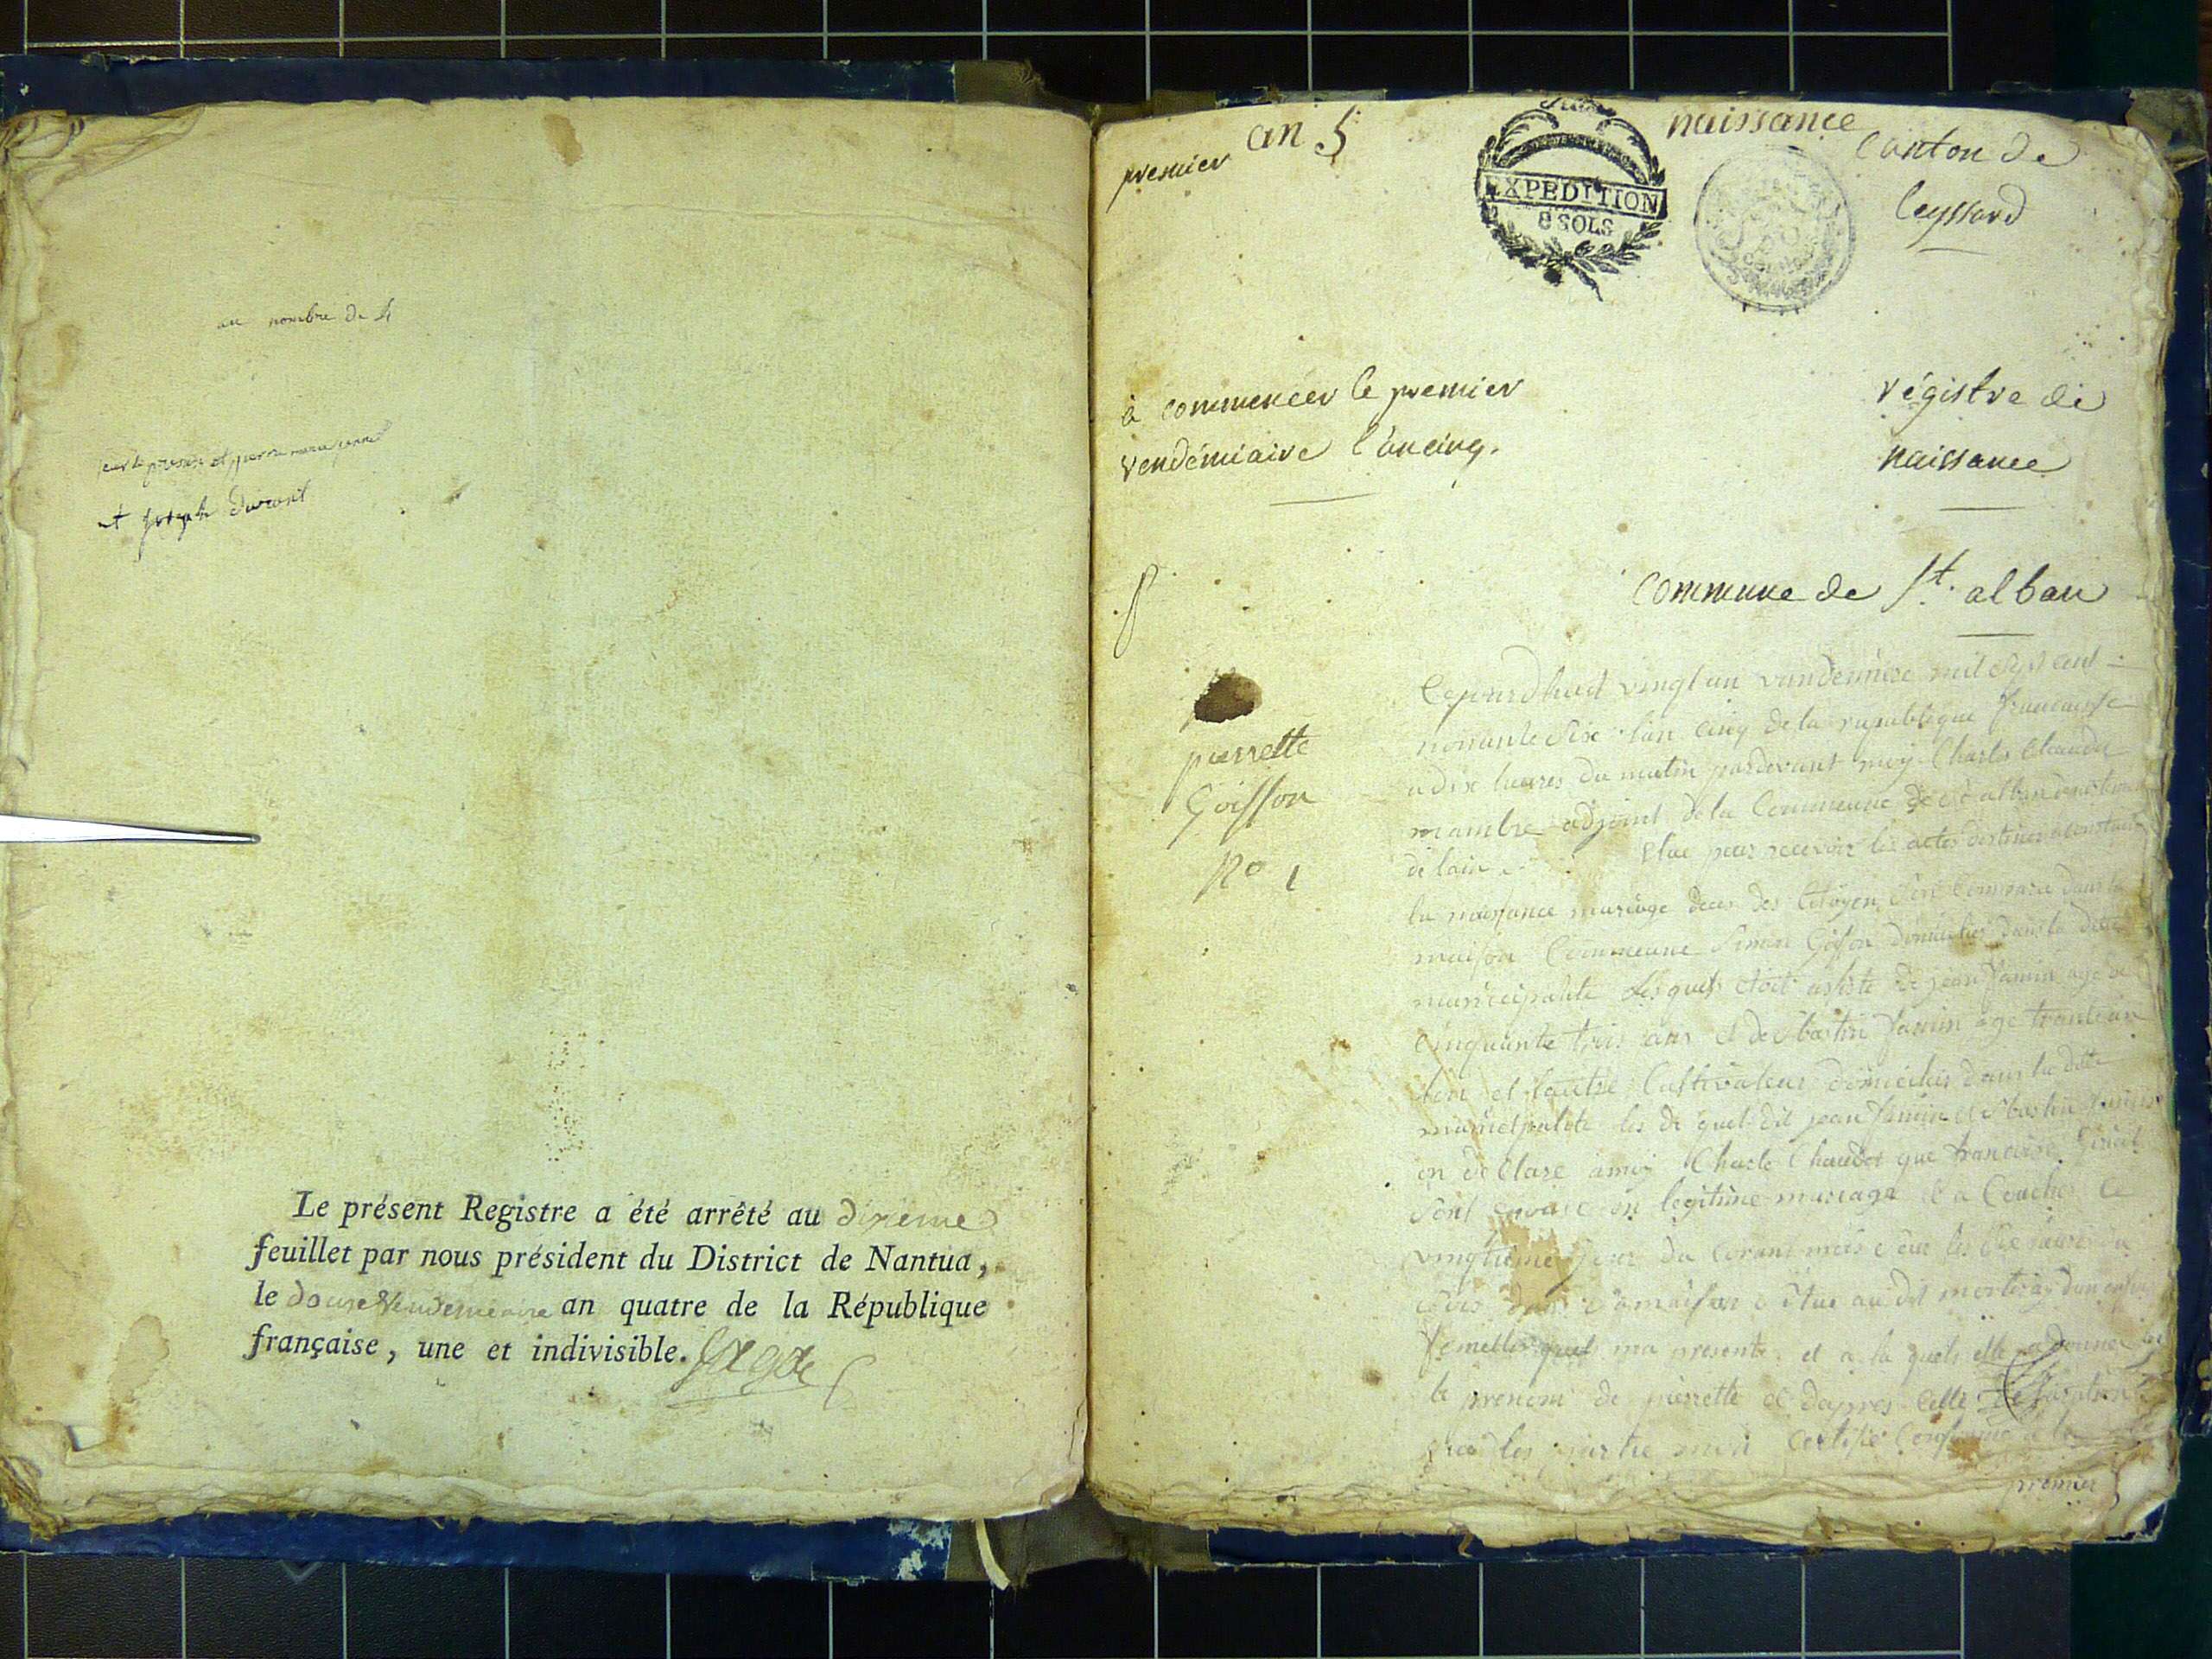 au nombre de 4
et pierre marie
et joseph durand
Le présent Registre a été arrêté au dixieme
feuillet par nous président du District de Nantua,
le douze Vendemeaire an quatre de la République
française, une et indivisible.
premier an 5 naissance
EXPEDITION
8 SOLS
Canton de
leyssard
à commencer le premier
vendémiaire l'an cinq.
régistre de
naissance
commune de St. alban
pierrette
Goisson
No 1
Cejourdhuit vingt un vendemiere mil sept cent
nonante sixe lan cinq de la republique francaisse
a dix heures du matin pardevant moy Charles Chaudet
mambre adjoint de la Commeune de st alban
de lain Elue pour recevoir les actes destines a constater
la naissance mariage deces des Citoyen Sont Comparu dans la
maison Commeune Simon Goisson domicilies dans la ditte
municipalite lesquels etoit asiste de jean jamin age de
cinquante trois ans et de sbastin jamin age trante un
lun et lautre Cultivateur domicilies dans la ditte
municipalite les de quel dit jean jamin et sbastin jamin
on declare amoy Charle Chaudet que francoise
sont epouse en legitime mariage et a Couches le
vingtieme jour du Corant mois sur les dix heures du
soir dans sa maison situe au dit mortaray dun enfant
femelle quel ma presente et a la quels elle a donner
le prenom de pierrette et dapres cette
que les partie mon certifie Conforme a la
premier